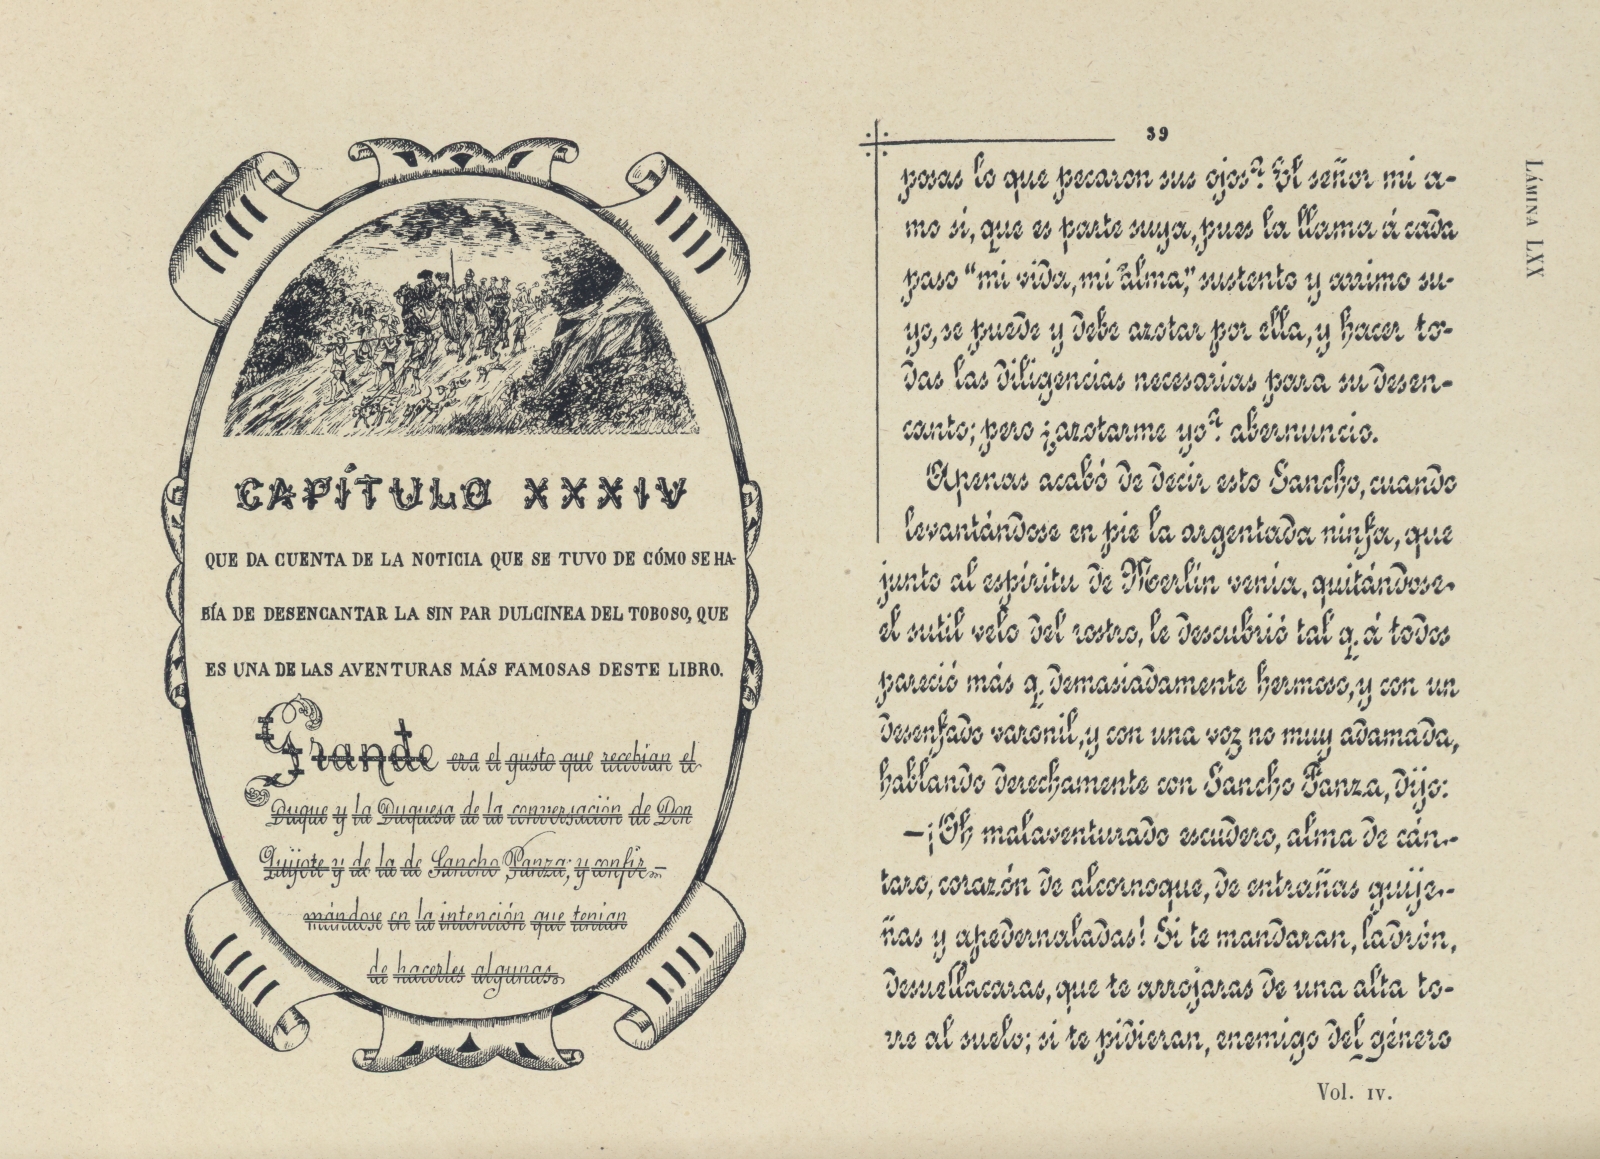 CAPÍTULO XXXIV
QUE DA CUENTA DE LA NOTICIA QUE SE TUVO DE CÓMO SE HA-
BÍA DE DESENCANTAR LA SIN PAR DULCINEA DEL TOBOSO, QUE
ES UNA DE LAS AVENTURAS MÁS FAMOSAS DESTE LIBRO.
Grande era el gusto que recebían el
Duque y la Duquesa de la conversación de Don
Quijote y de la de Sancho Panza; y confir-
mándose en la intención que tenían
de hacerles algunas
39
posas lo que pecaron sus ojos? El señor mi a-
mo sí, que es parte suya, pues la llama á cada
paso "mi vida, mi alma," sustento y arrimo su-
yo, se puede y debe azotar por ella, y hacer to-
das las diligencias necesarias para su desen-
canto; pero ¿azotarme yo? abernuncio.
Apenas acabó de decir esto Sancho, cuando
levantándose en pie la argentada ninfa, que
junto al espíritu de Merlín venía, quitándose
el sutil velo del rostro, le descubrió tal q. á todos
pareció más q. demasiadamente hermoso, y con un
desenfado varonil, y con una voz no muy adamada,
hablando derechamente con Sancho Panza, dijo:
—¡Oh malaventurado escudero, alma de cán-
taro, corazón de alcornoque, de entrañas guije-
ñas y apedernaladas! Si te mandaran, ladrón,
desuellacaras, que te arrojaras de una alta to-
rre al suelo; si te pidieran, enemigo del género
Vol. IV.
LÁMINA LXX